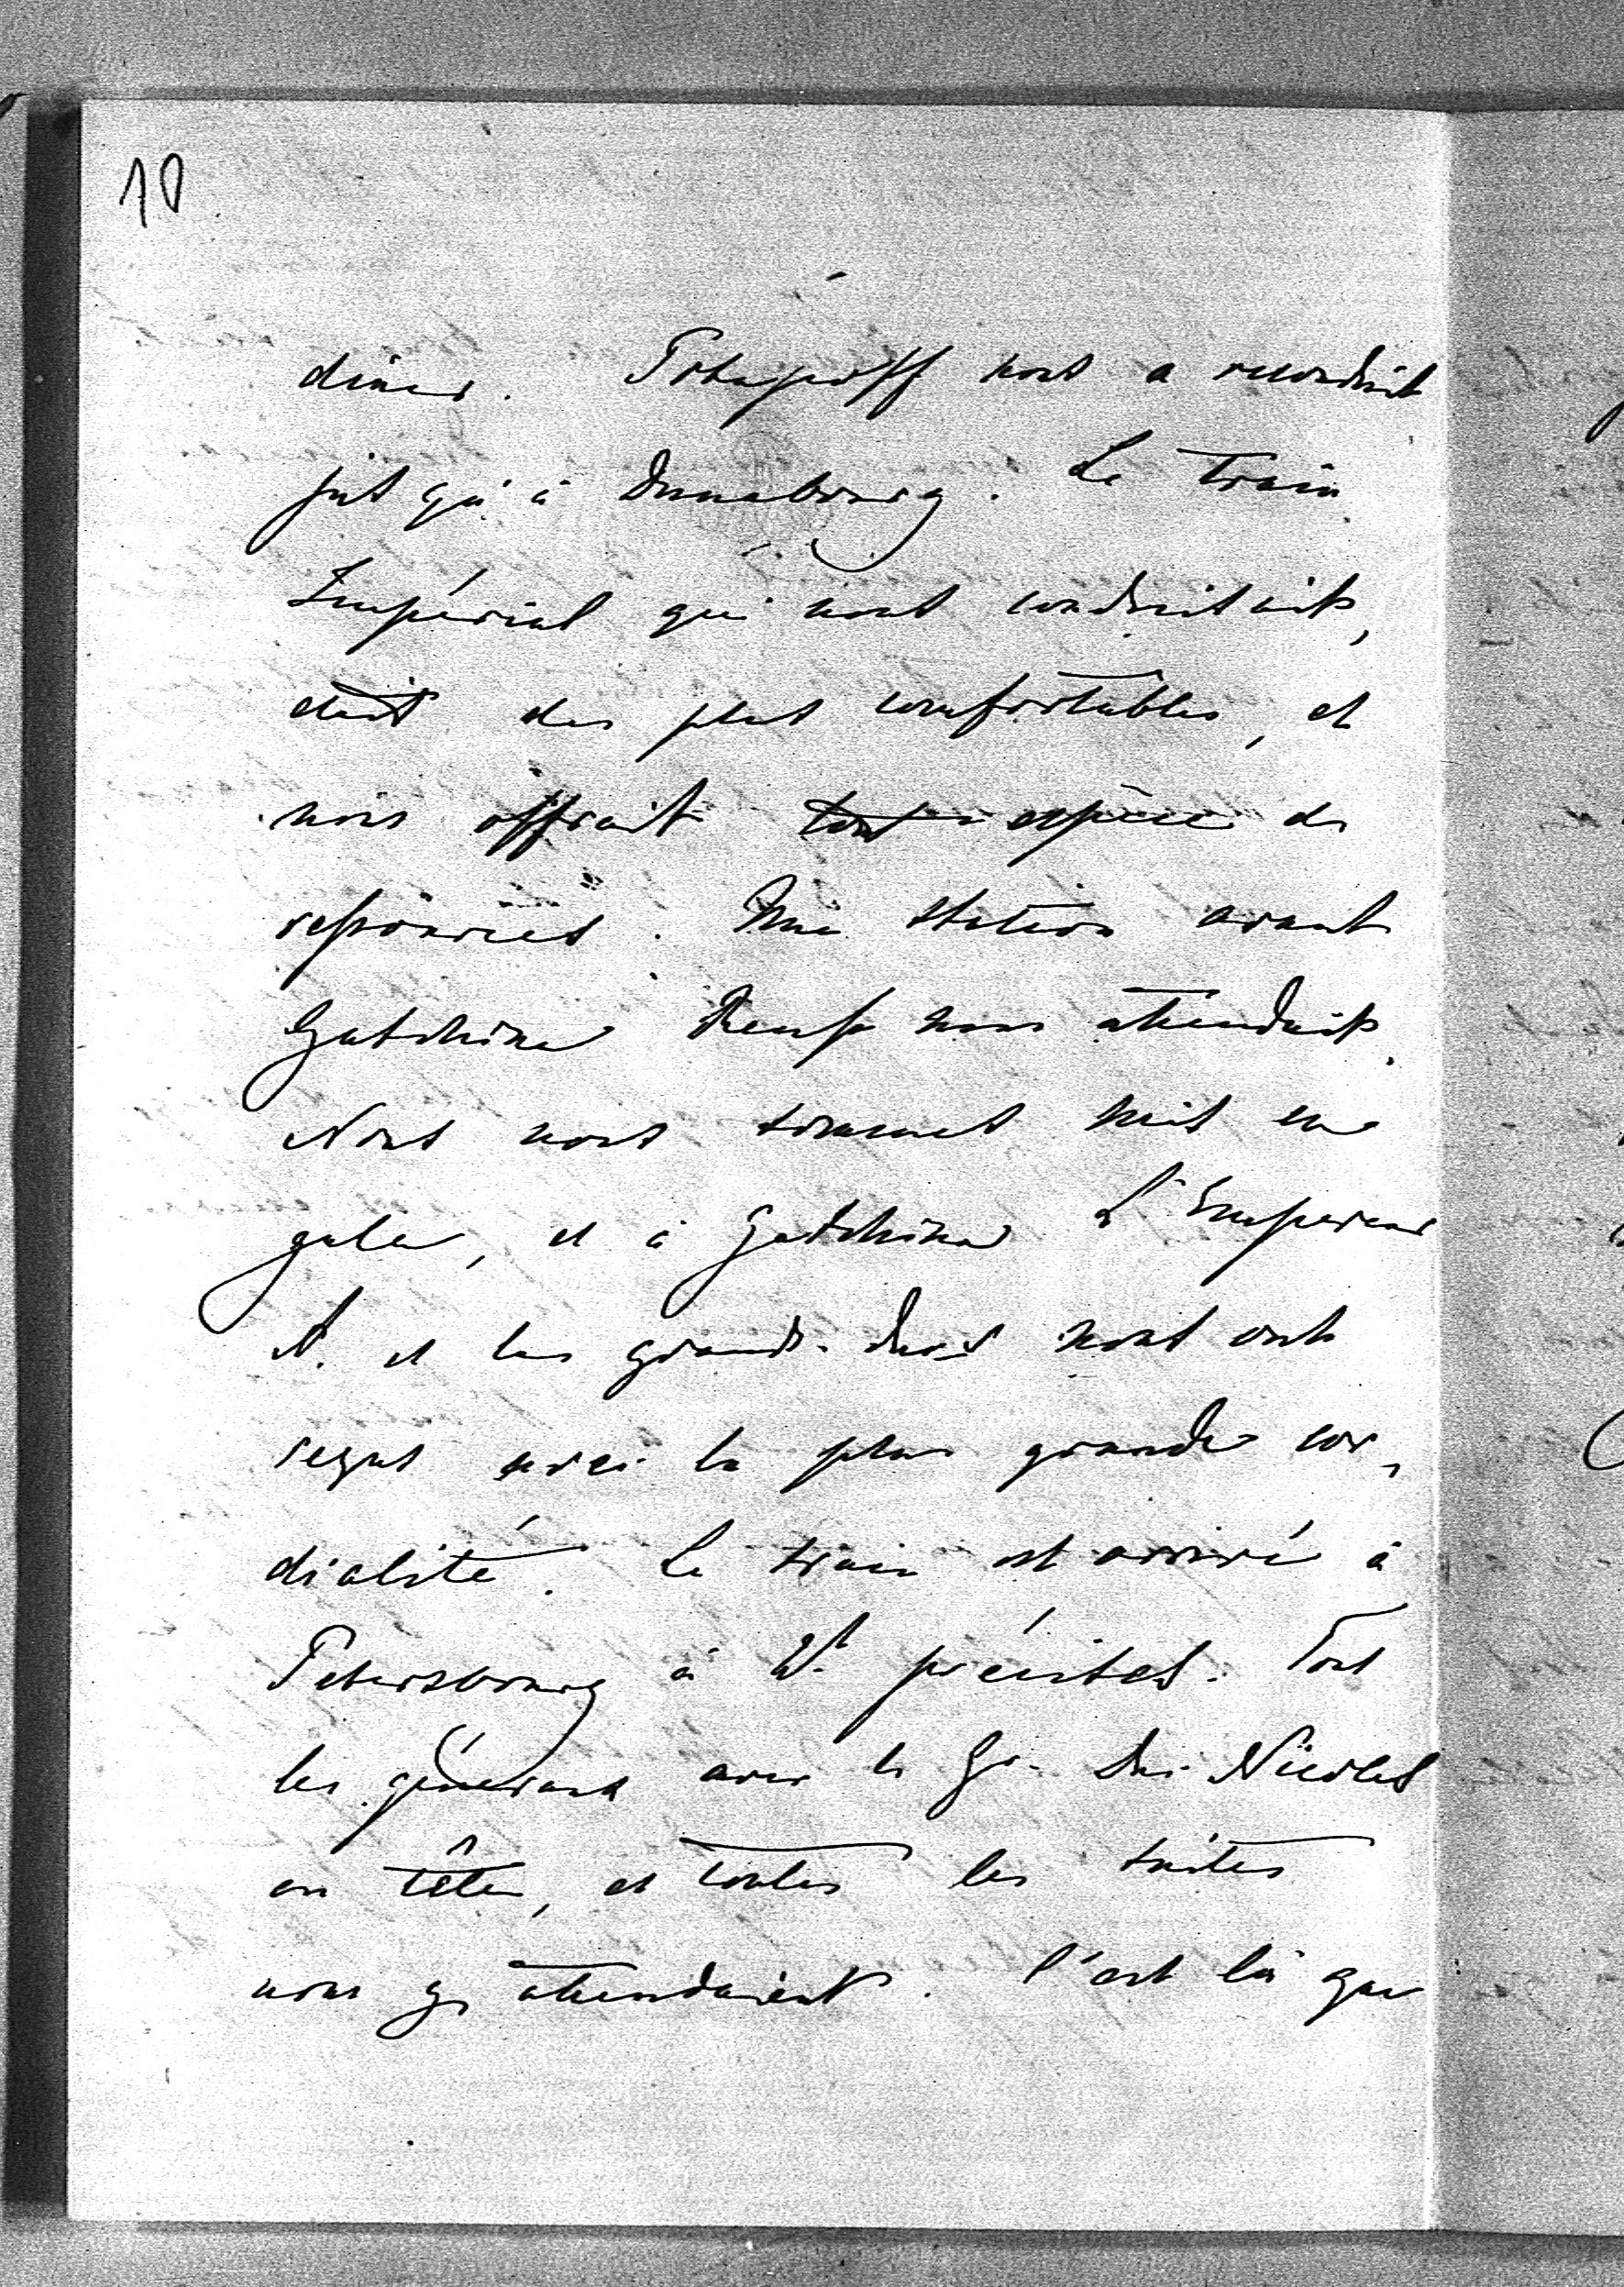 10
diner. Potapoff nous a reconduit
jusqu'à Dunabourg. Le train
Impérial qui nous conduisait,
etait des plus comfortables, et
nous offrait tout espèce de
ressources. Une station avant
Gatchina Reuss nous attendait.
Nous nous sommes mis en
gala, et à Gatchina L'Empereur
A. et les grands-ducs nous ont
reçus avec la plus grande cor-
dialité. Le train est arrivé à
Petersbourg à précises. Tous
les généraux avec le Gr. Duc Nicolas
en tête, et toutes les suites
nous y attendaient. C'est là que